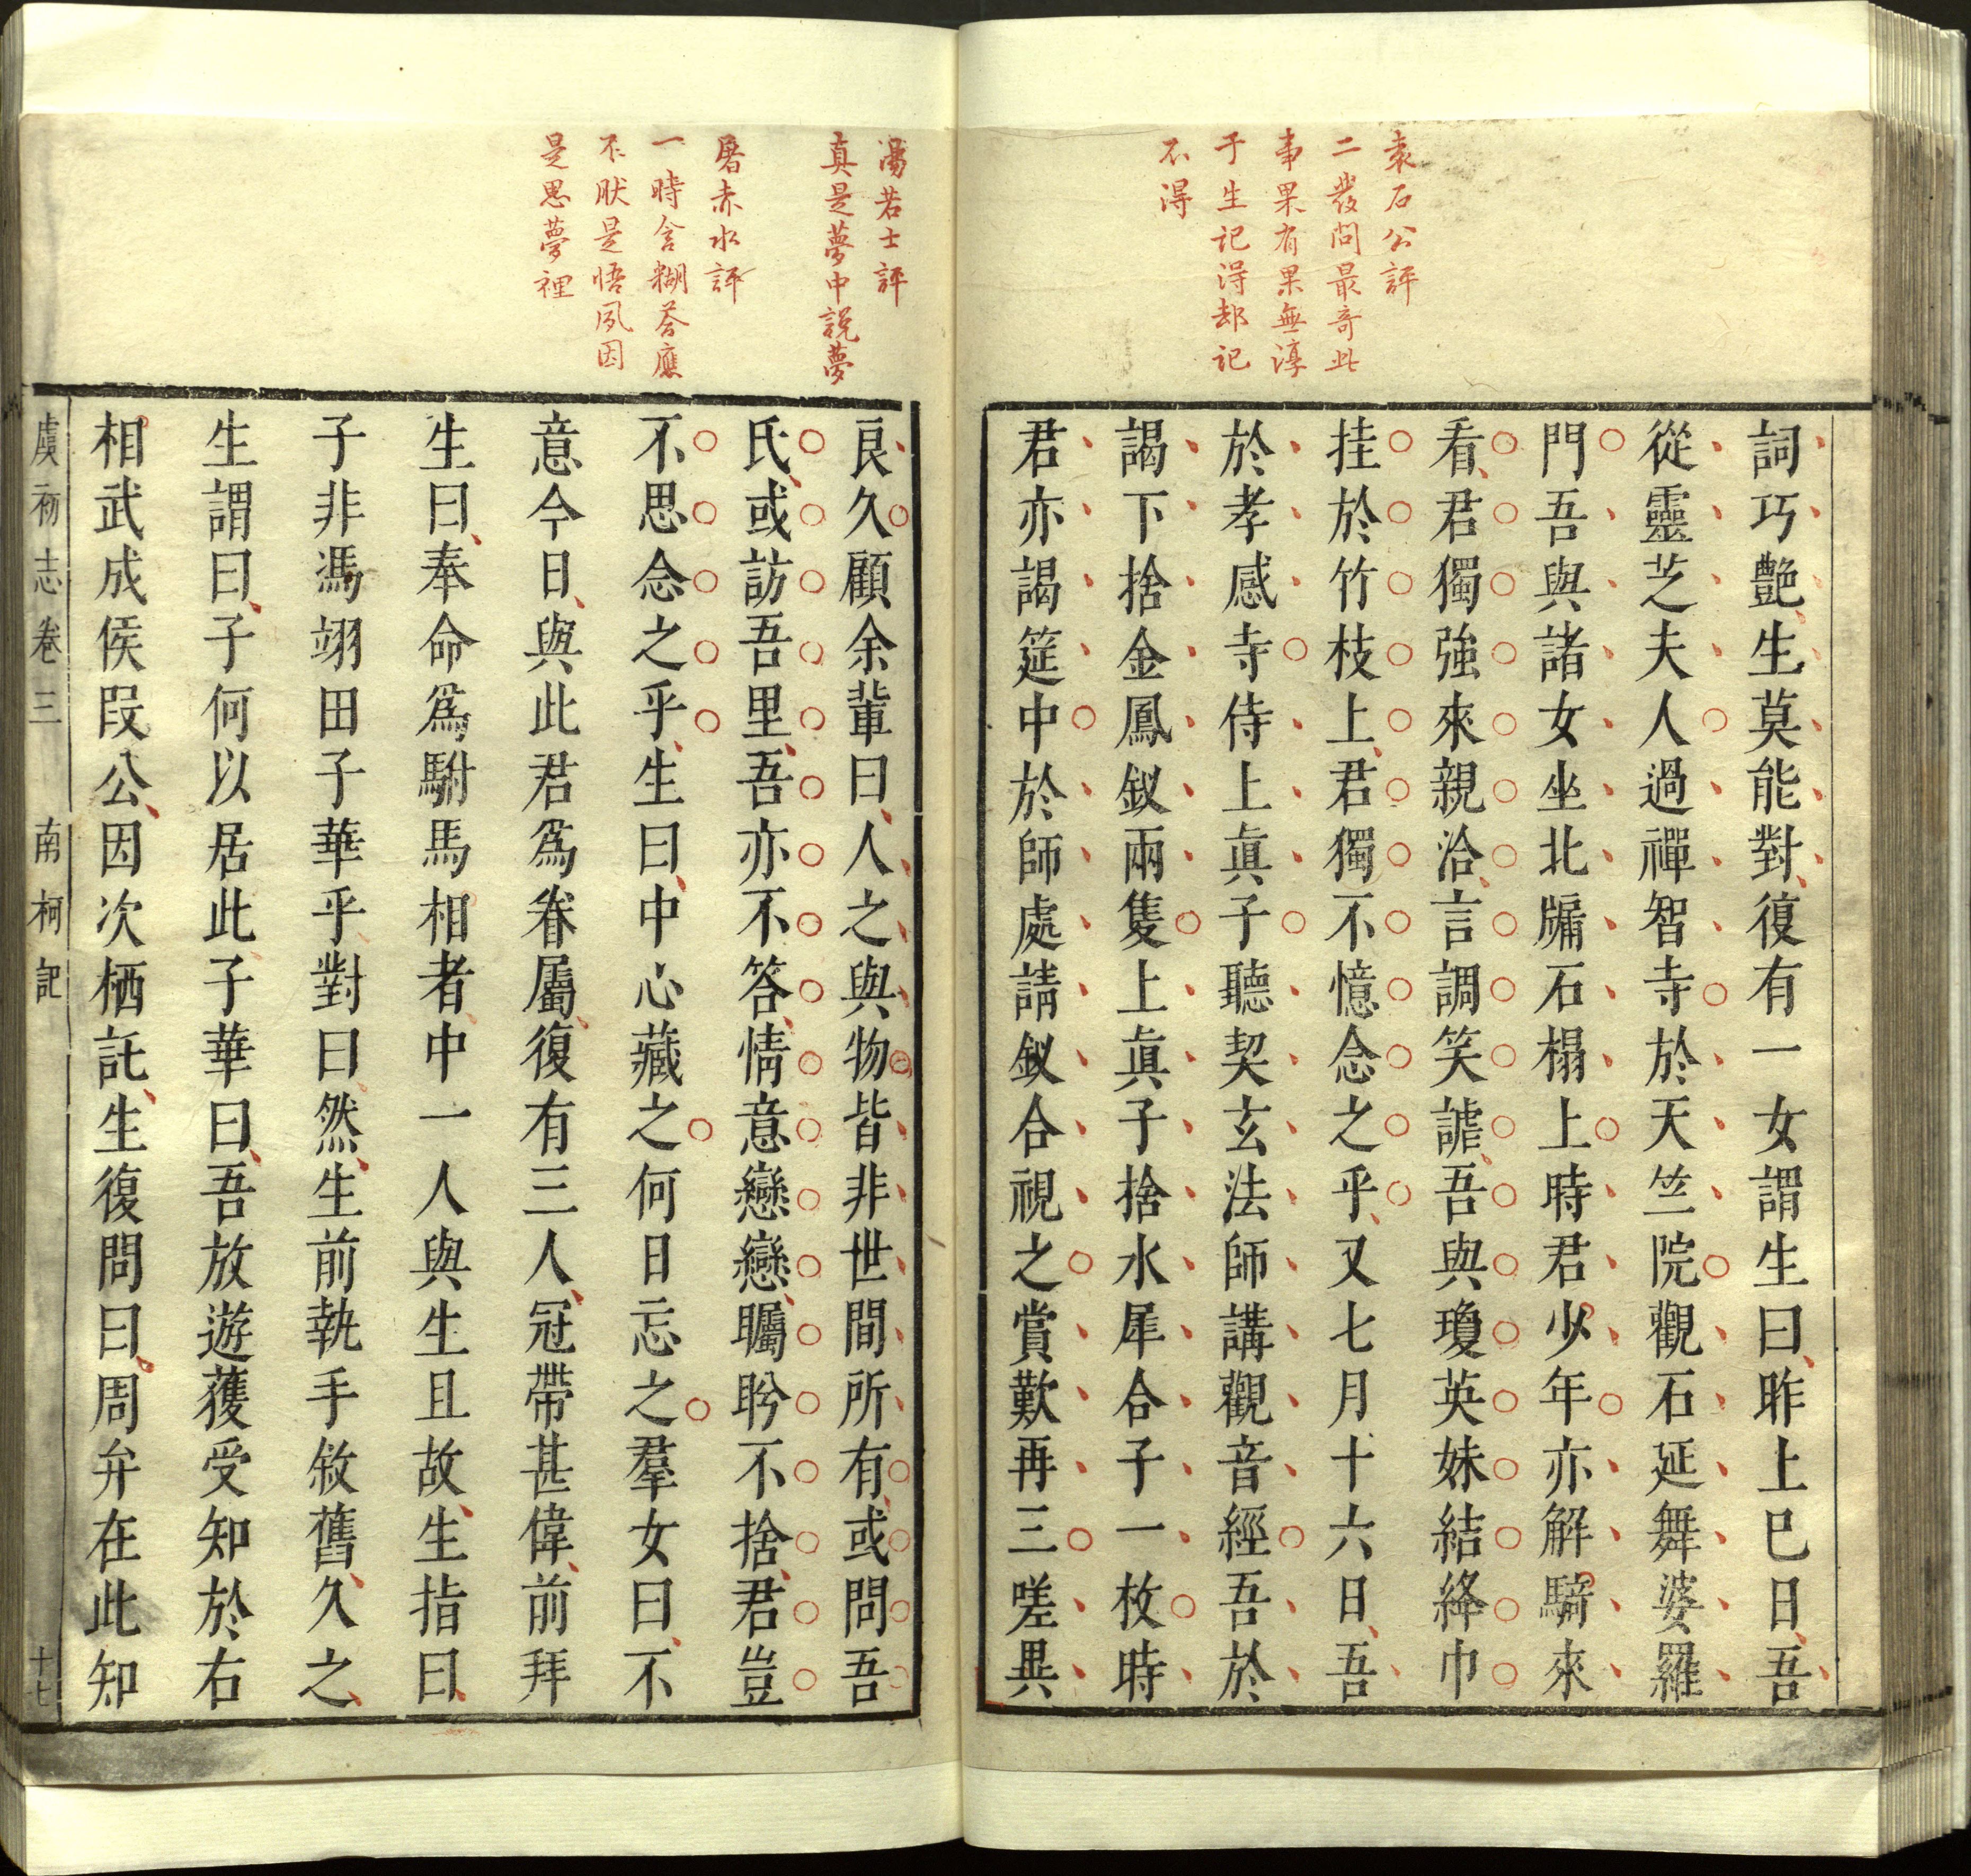 袁石公評
二發問最奇此
事果有果無淳
于生記得却記
不得
詞巧艶生莫能對復有一女謂生曰昨上巳日吾
從靈芝夫人過禪智寺於天竺院觀石延舞婆羅
門吾與諸女坐北牖石榻上時君少年亦解騎來
看君獨強來親洽言調笑謔吾與瓊英妹結絳巾
挂於竹枝上君獨不憶念之乎又七月十六日吾
於孝感寺侍上眞子聽契玄法師講觀音經吾於
謁下捨金鳳釵兩隻上眞子捨水犀合子一枚時
君亦謁筵中於師處請釵合視之賞歎再三嗟異
湯若士評
真是夢中説夢
屠赤水評
一時含糊荅應
不肰是悟夙因
是思夢裡
良久顧余輩曰人之與物皆非世間所有或問吾
氏或訪吾里吾亦不答情意戀戀矚盻不捨君豈
不思念之乎生曰中心藏之何日忘之羣女曰不
意今日與此君爲眷屬復有三人冠帶甚偉前拜
生曰奉命爲駙馬相者中一人與生且故生指曰
子非馮翊田子華乎對曰然生前執手敘舊久之
生謂曰子何以居此子華曰吾放遊蒦受知於右
相武成侯段公因次栖託生復問曰周弁在此知
虞初志卷三 南柯記 十七